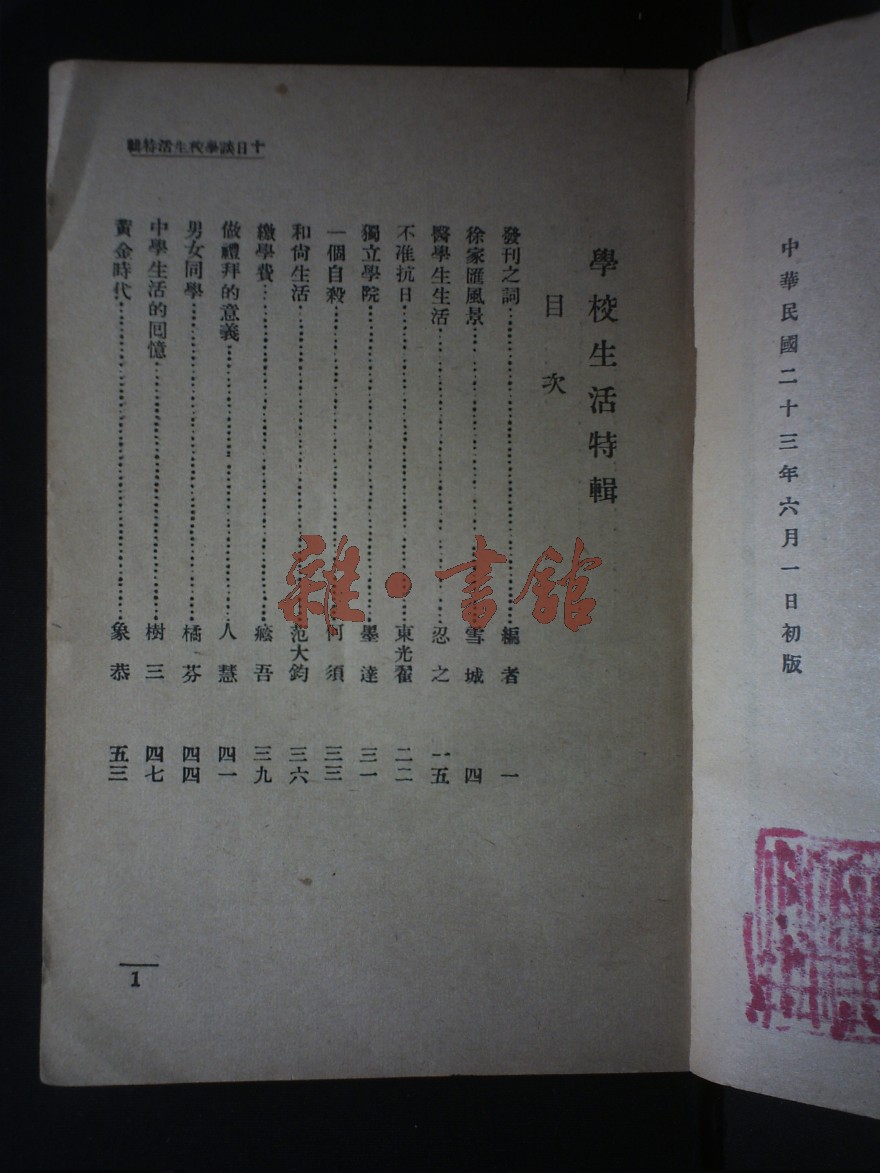 中華民國二十三年六月一日初版
十日談學校生活特輯
學校生活特輯
目次
發刊之詞 編者 一
徐家匯風景 雪城 四
醫學生生活 忍之 一五
不准抗日 東光翟 二二
獨立學院 墨達 三一
一個自殺 何須 三三
和尙生活 范大鈞 三六
繳學費 吾 三九
做禮拜的意義 人慧 四一
男女同學 橘芬 四四
中學生活的回憶 樹三 四七
黃金時代 象恭 五三
1
雜·書館